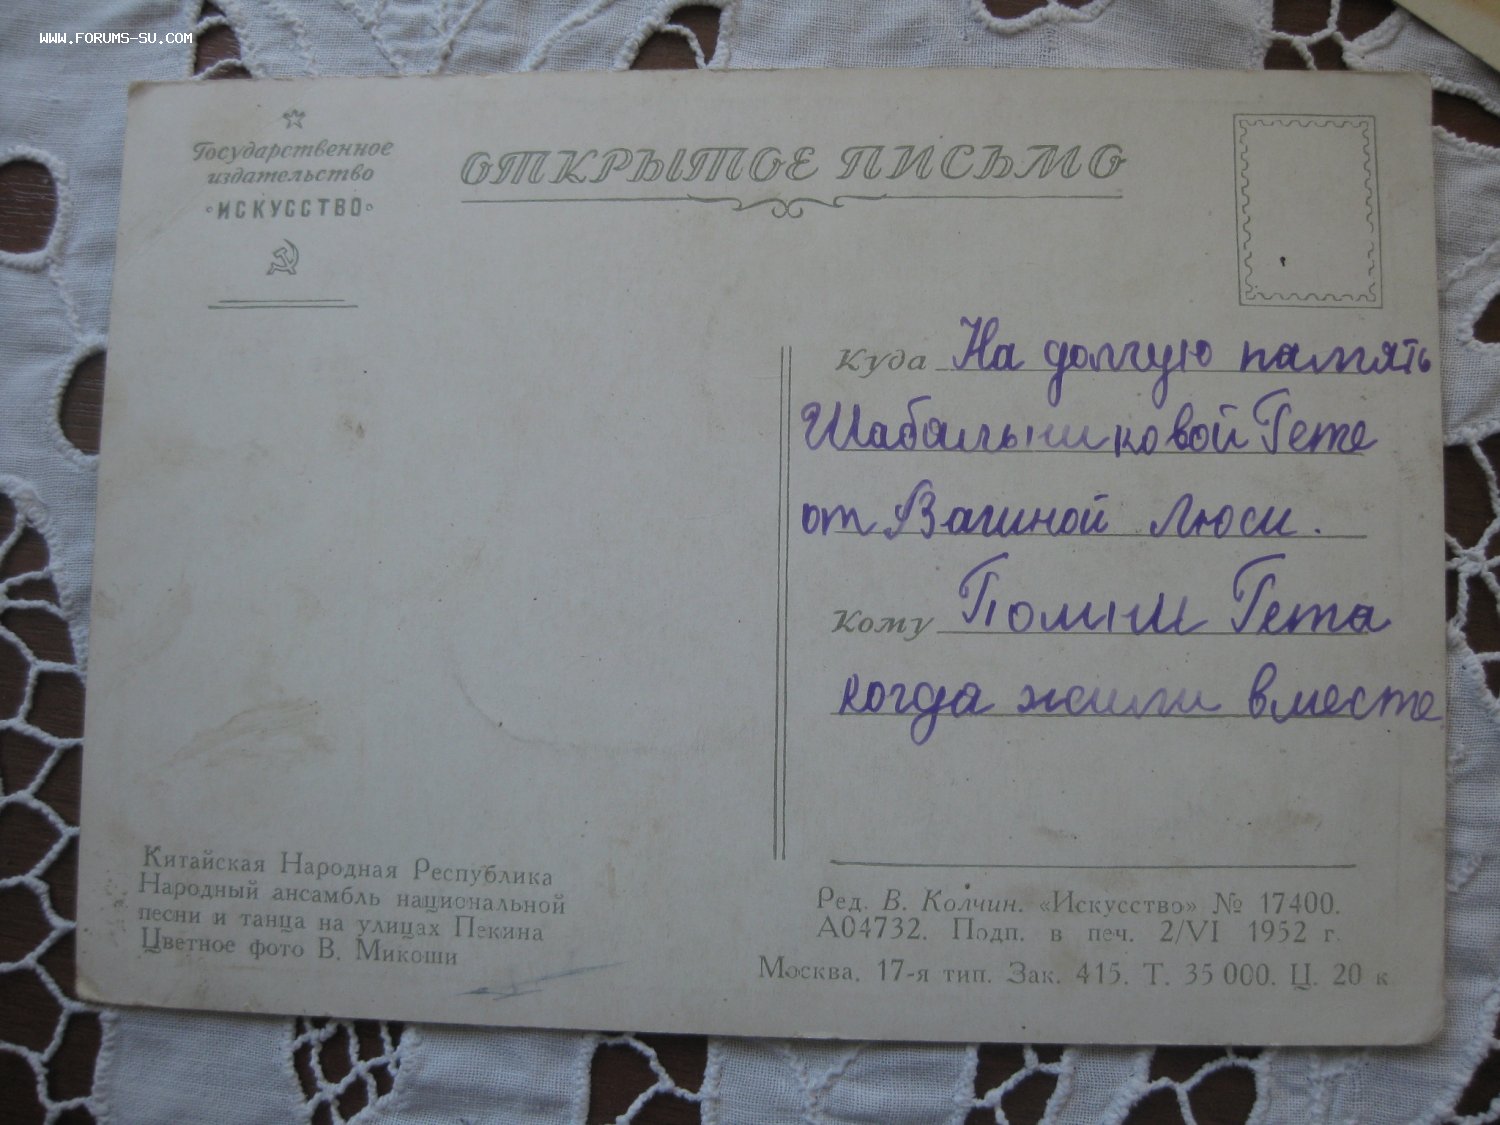 WWW.FORUMS-SU.COM
Государственное
издательство
«ИСКУССТВО»
ОТКРЫТОЕ ПИСЬМО
Куда На долгую память
Шабальниковой Гете
от Вагиной Люси.
Кому Помни Гета
когда жили вместе
Китайская Народная Республика
Народный ансамбль национальной
песни и танца на улицах Пекина
Цветное фото В. Микоши
Ред. В. Колчин. «Искусство» № 17400.
А04732. Подп. в печ. 2/VI 1952 г.
Москва. 17-я тип. Зак. 415. Т. 35 000. Ц. 20 к